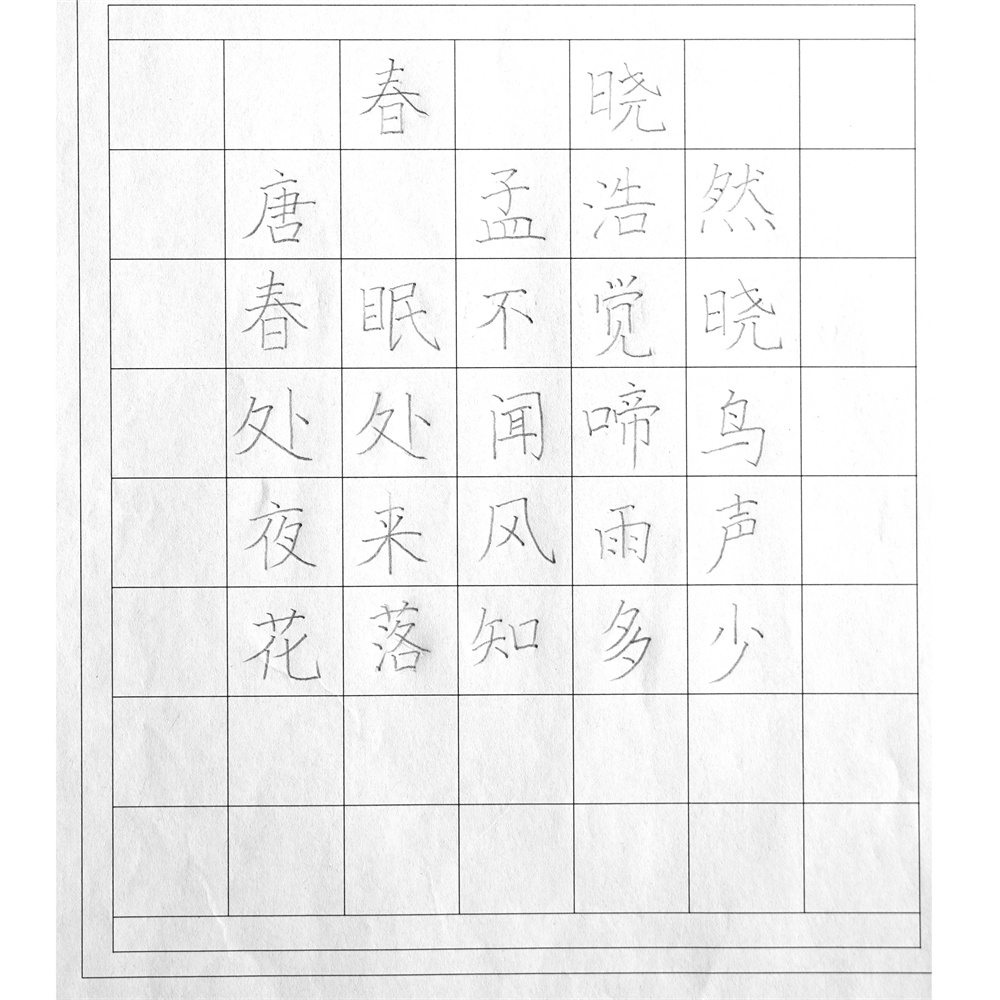 春 晓
唐 孟浩然
春眠不觉晓
处处闻啼鸟
夜来风雨声
花落知多少